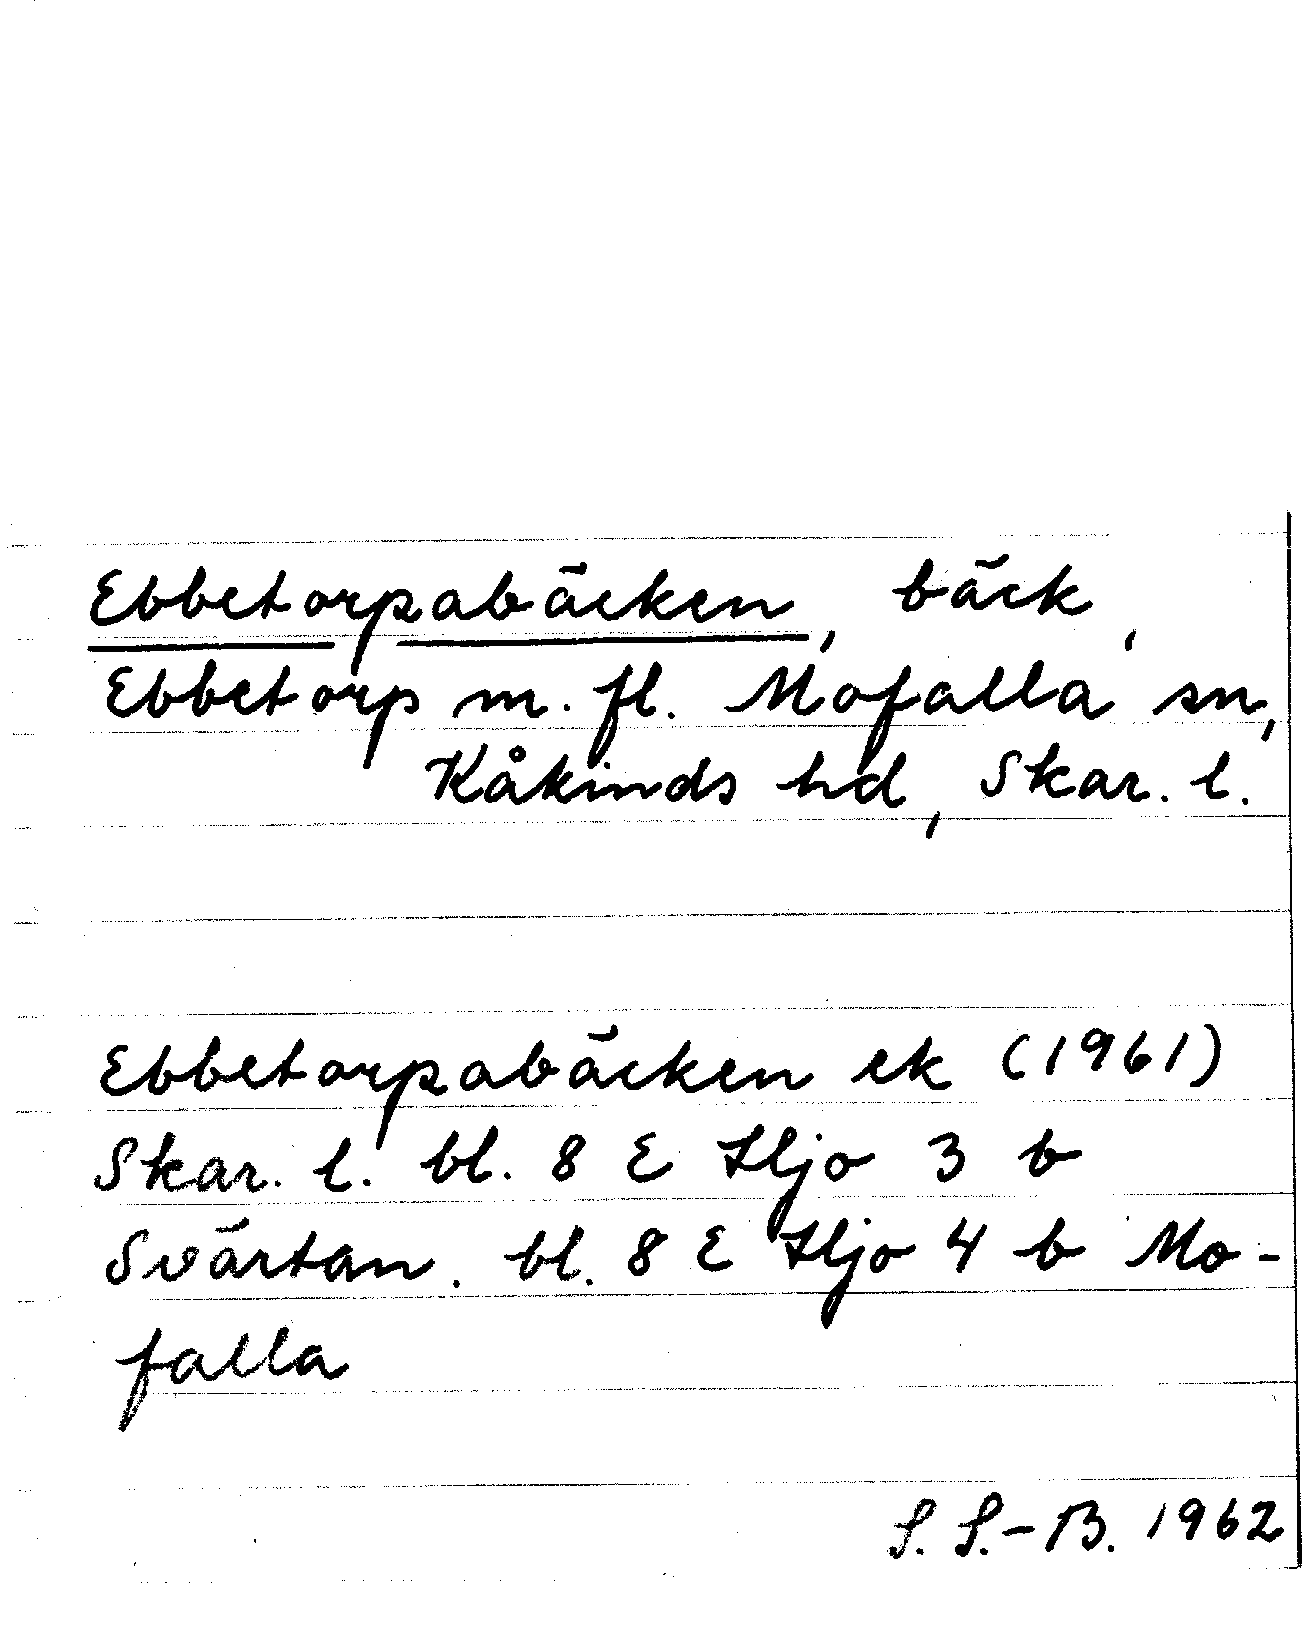 Ebbetorpabäcken, bäck,
Ebbetorp m. fl. Mofalla sn,
Kåkinds hd, Skar. l.
Ebbetorpabäcken ek (1961)
Skar. l. bl. 8 E Hjo 3 b
Svärtan. bl. 8 E Hjo 4 b Mo-
falla
S. S.-B. 1962